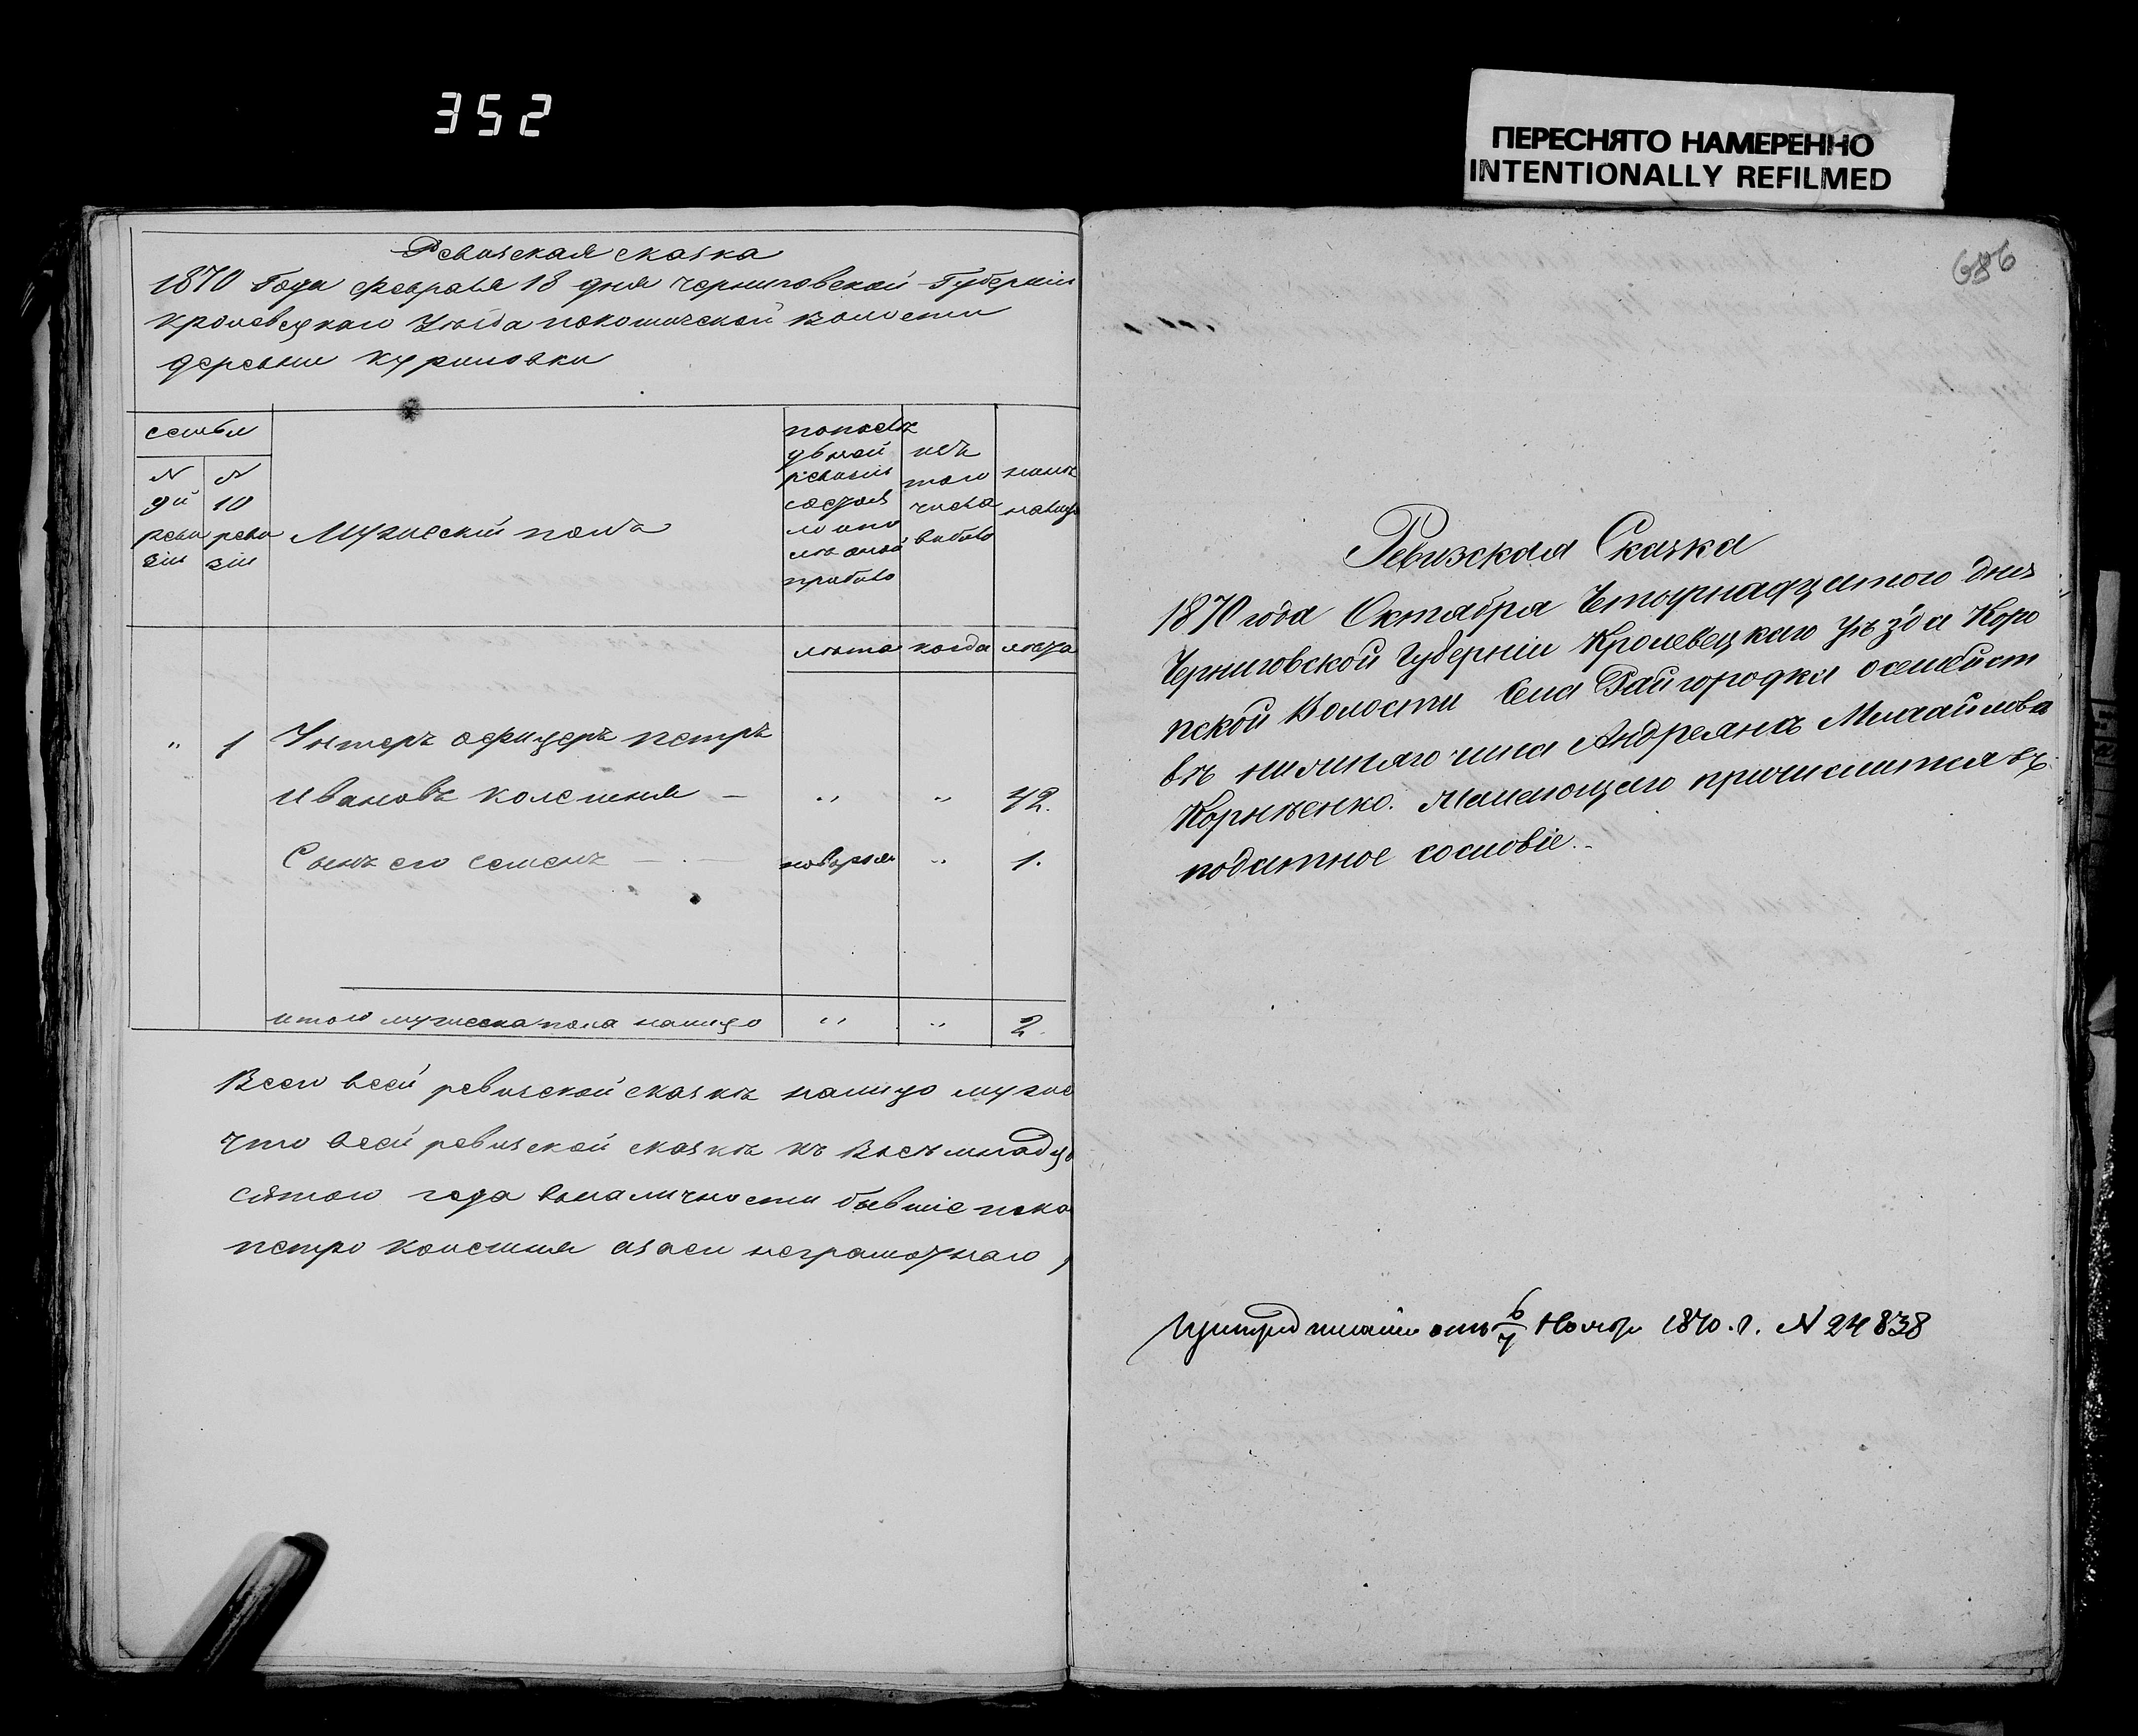 352
ПЕРЕСНЯТО НАМЕРЕННО
INTENTIONALLY REFILMED
Ревизская сказка
1870 Года февраля 18 дня черниговской Губерніи
кролевецкаго Уѣзда покошичской волости
деревни куриловки
семьи
N
9й
реви
зіи
N
10
реви
зіи
Мужескій полъ
попослѣ
дьней
ревизіи
состоя
ло или
прибыло
изъ
того
числа
выбыло
нынѣ
налицо
лѣта
когда
лѣта
" 1 Унтеръ офицеръ петръ
Ивановъ колешня — " " 42.
Сынъ его семенъ — новорож " 1.
итого мужеска пола налицо " " 2.
Всего всей ревизской сказкѣ налицо мужес
Что всей ревизской сказкѣ
сятого года вналичности бывшіе пока
петро колешня азаси неграмотнаго
686
Ревизская Сказка
1870 года Октября Четырнадцатого дня
Черниговской Губерніи Кролевецкаго уѣзда Коро
пской Волости Села Райгородка осемейст
вѣ нижняго чина Андреяна Михайлова
Корнѣенко. Желающего причислится въ
податное сословіе.
отъ 6/7 Нояб 1870 г. N 24838